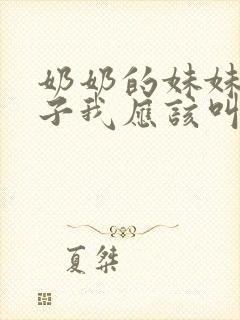 奶奶的妹妹
子我应该叫
夏桀